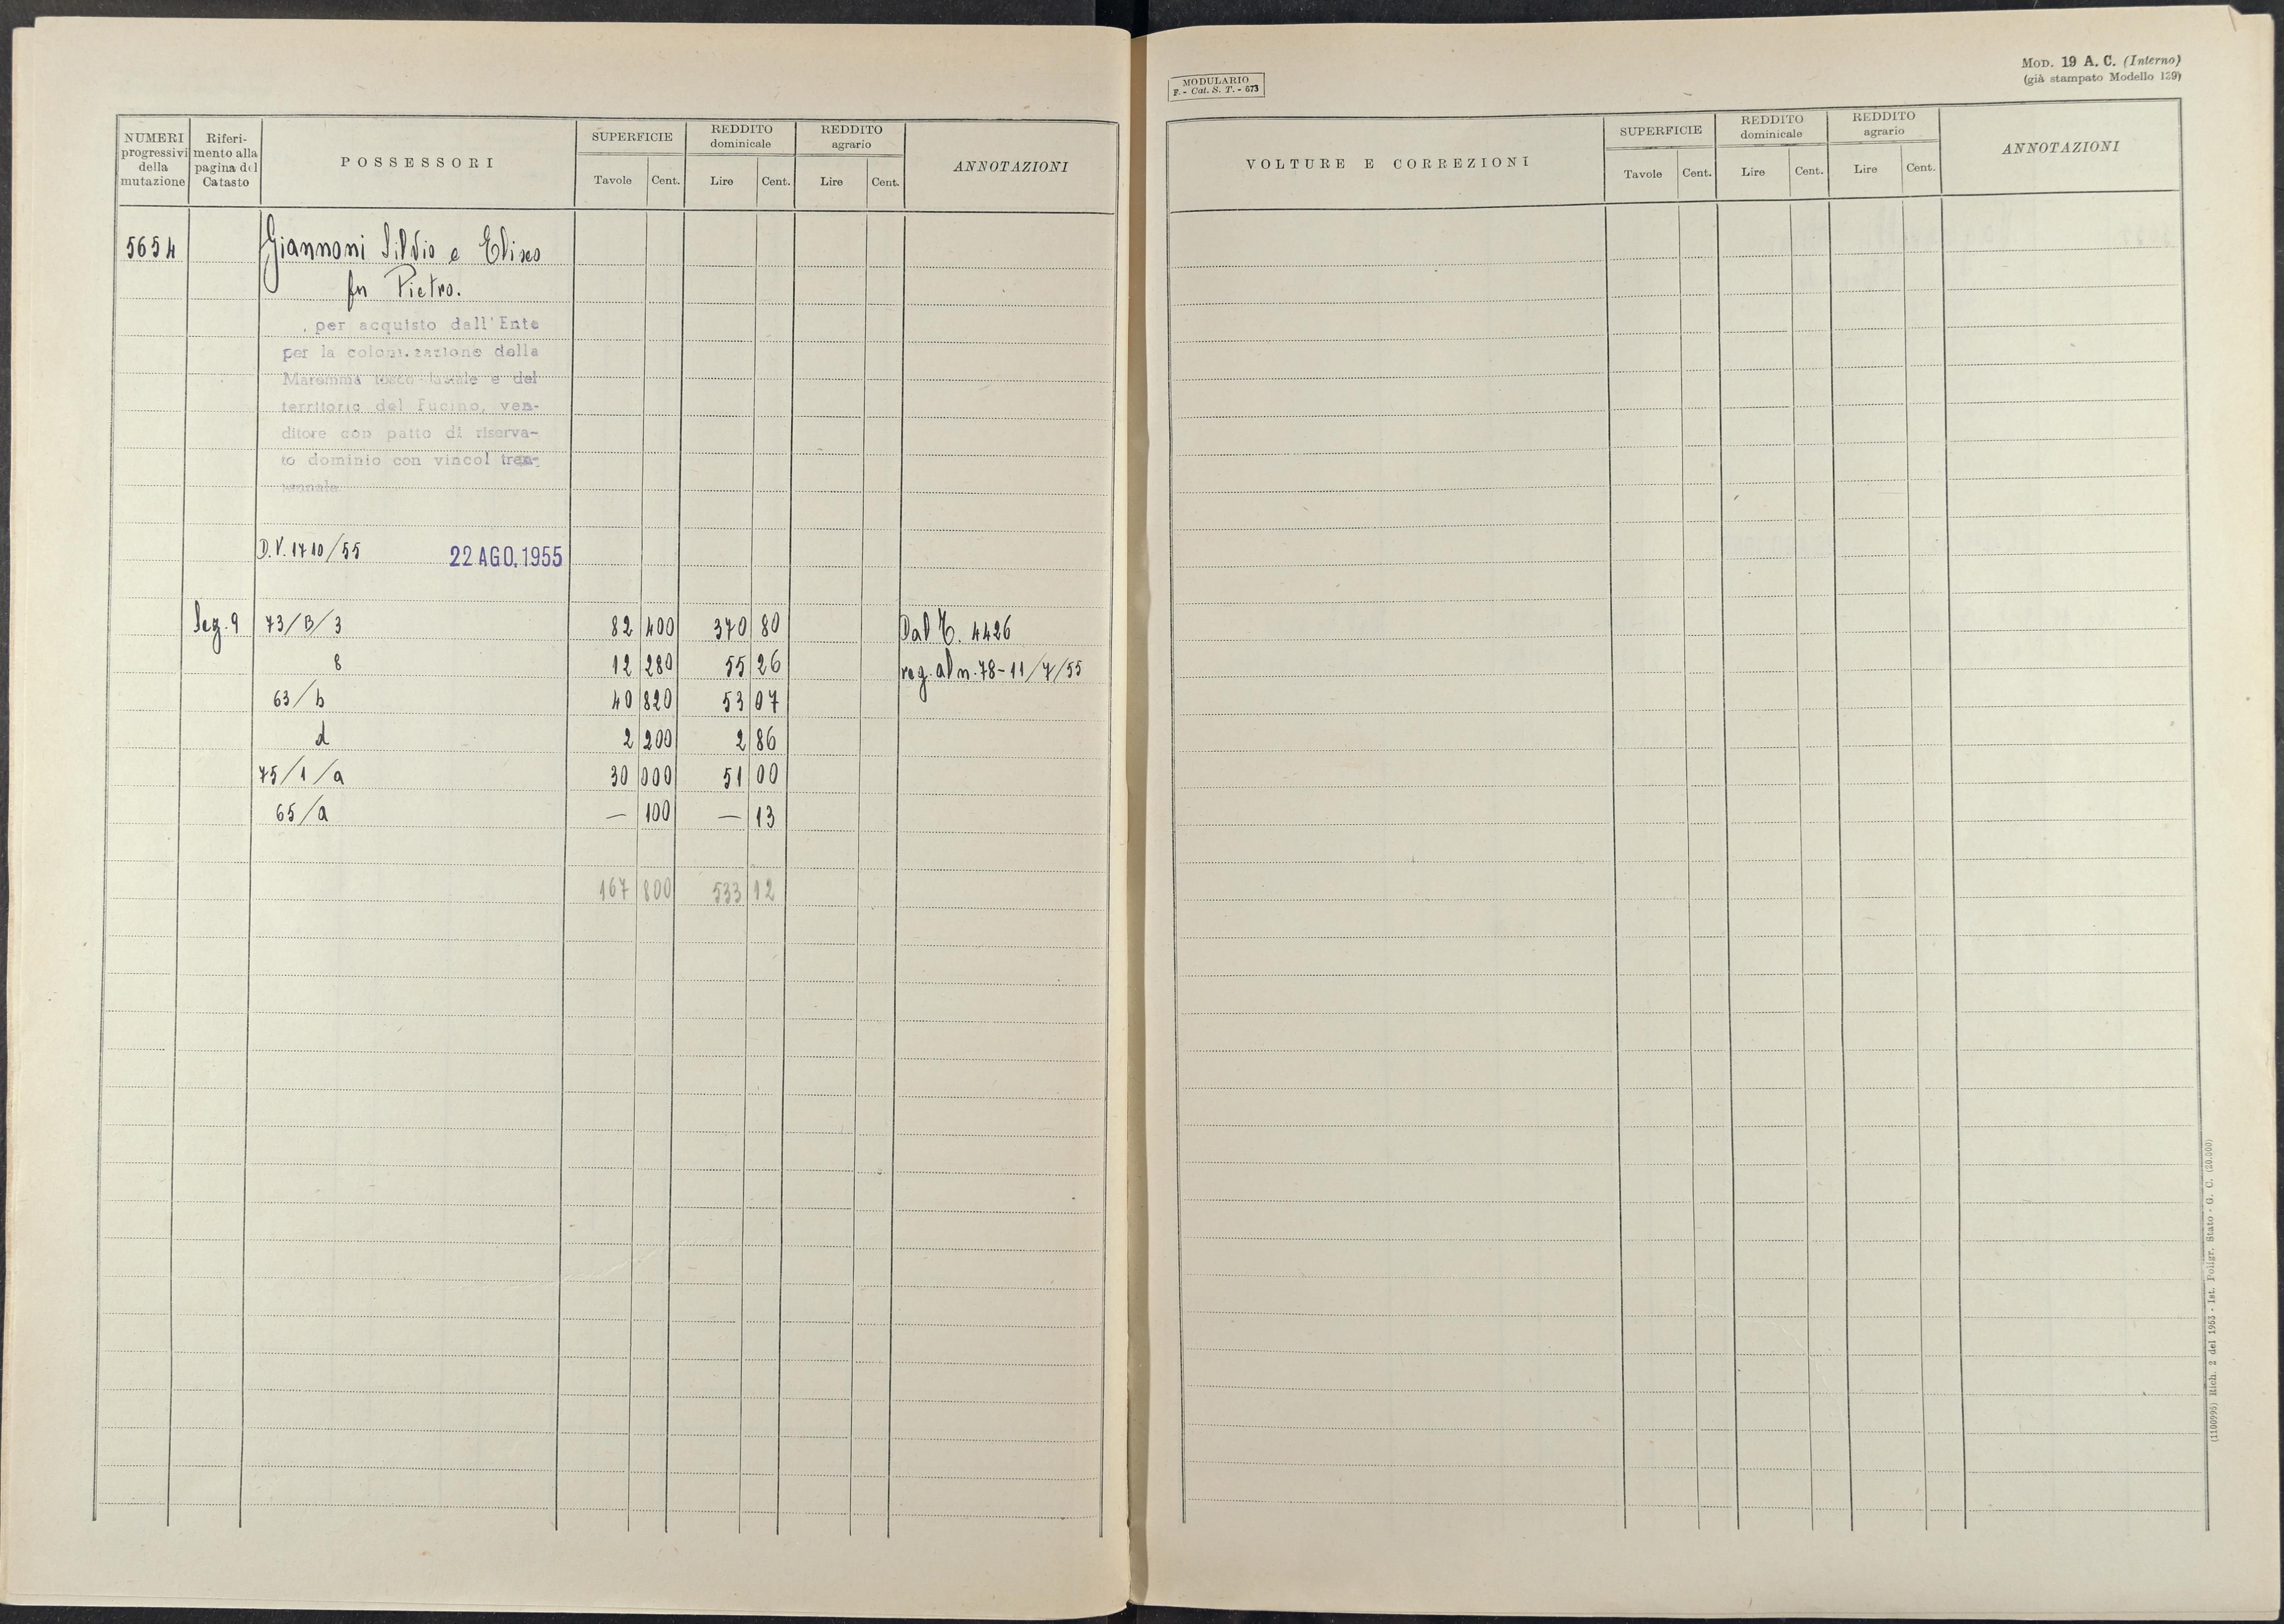 NUMERI
progressivi
della
mutazione
Riferi-
mento alla
pagina del
Catasto
POSSESSORI
SUPERFICIE
Tavole Cent.
REDDITO
dominicale
Lire Cent.
REDDITO
agrario
Lire Cent.
ANNOTAZIONI
5654 Giannoni Silvio e Eliseo
fu Pietro.
per acquisto dall'Ente
per la colonizzazione della
Maremma tosco-laziale e del
territorio del Fucino, ven-
ditore con patto di riserva-
to dominio con vincol tren-
tennale
D.V. 1710/55 22 AGO. 1955
Sez. 9 73/B/3 82 400 370 80 Dal C. 4426
8 12 280 55 26 reg. al n. 78-11/7/55
63/b 40 820 53 07
d 2 200 2 86
75/1/a 30 000 51 00
65/a — 100 — 13
167 800 533 12
MODULARIO
F. - Cat. S. T. - 673
MOD. 19 A. C. (Interno)
(già stampato Modello 139)
VOLTURE E CORREZIONI
SUPERFICIE
Tavole Cent.
REDDITO
dominicale
Lire Cent.
REDDITO
agrario
Lire Cent.
ANNOTAZIONI
(1100996) Rich. 2 del 1953 - Ist. Poligr. Stato - G. C. (20.000)